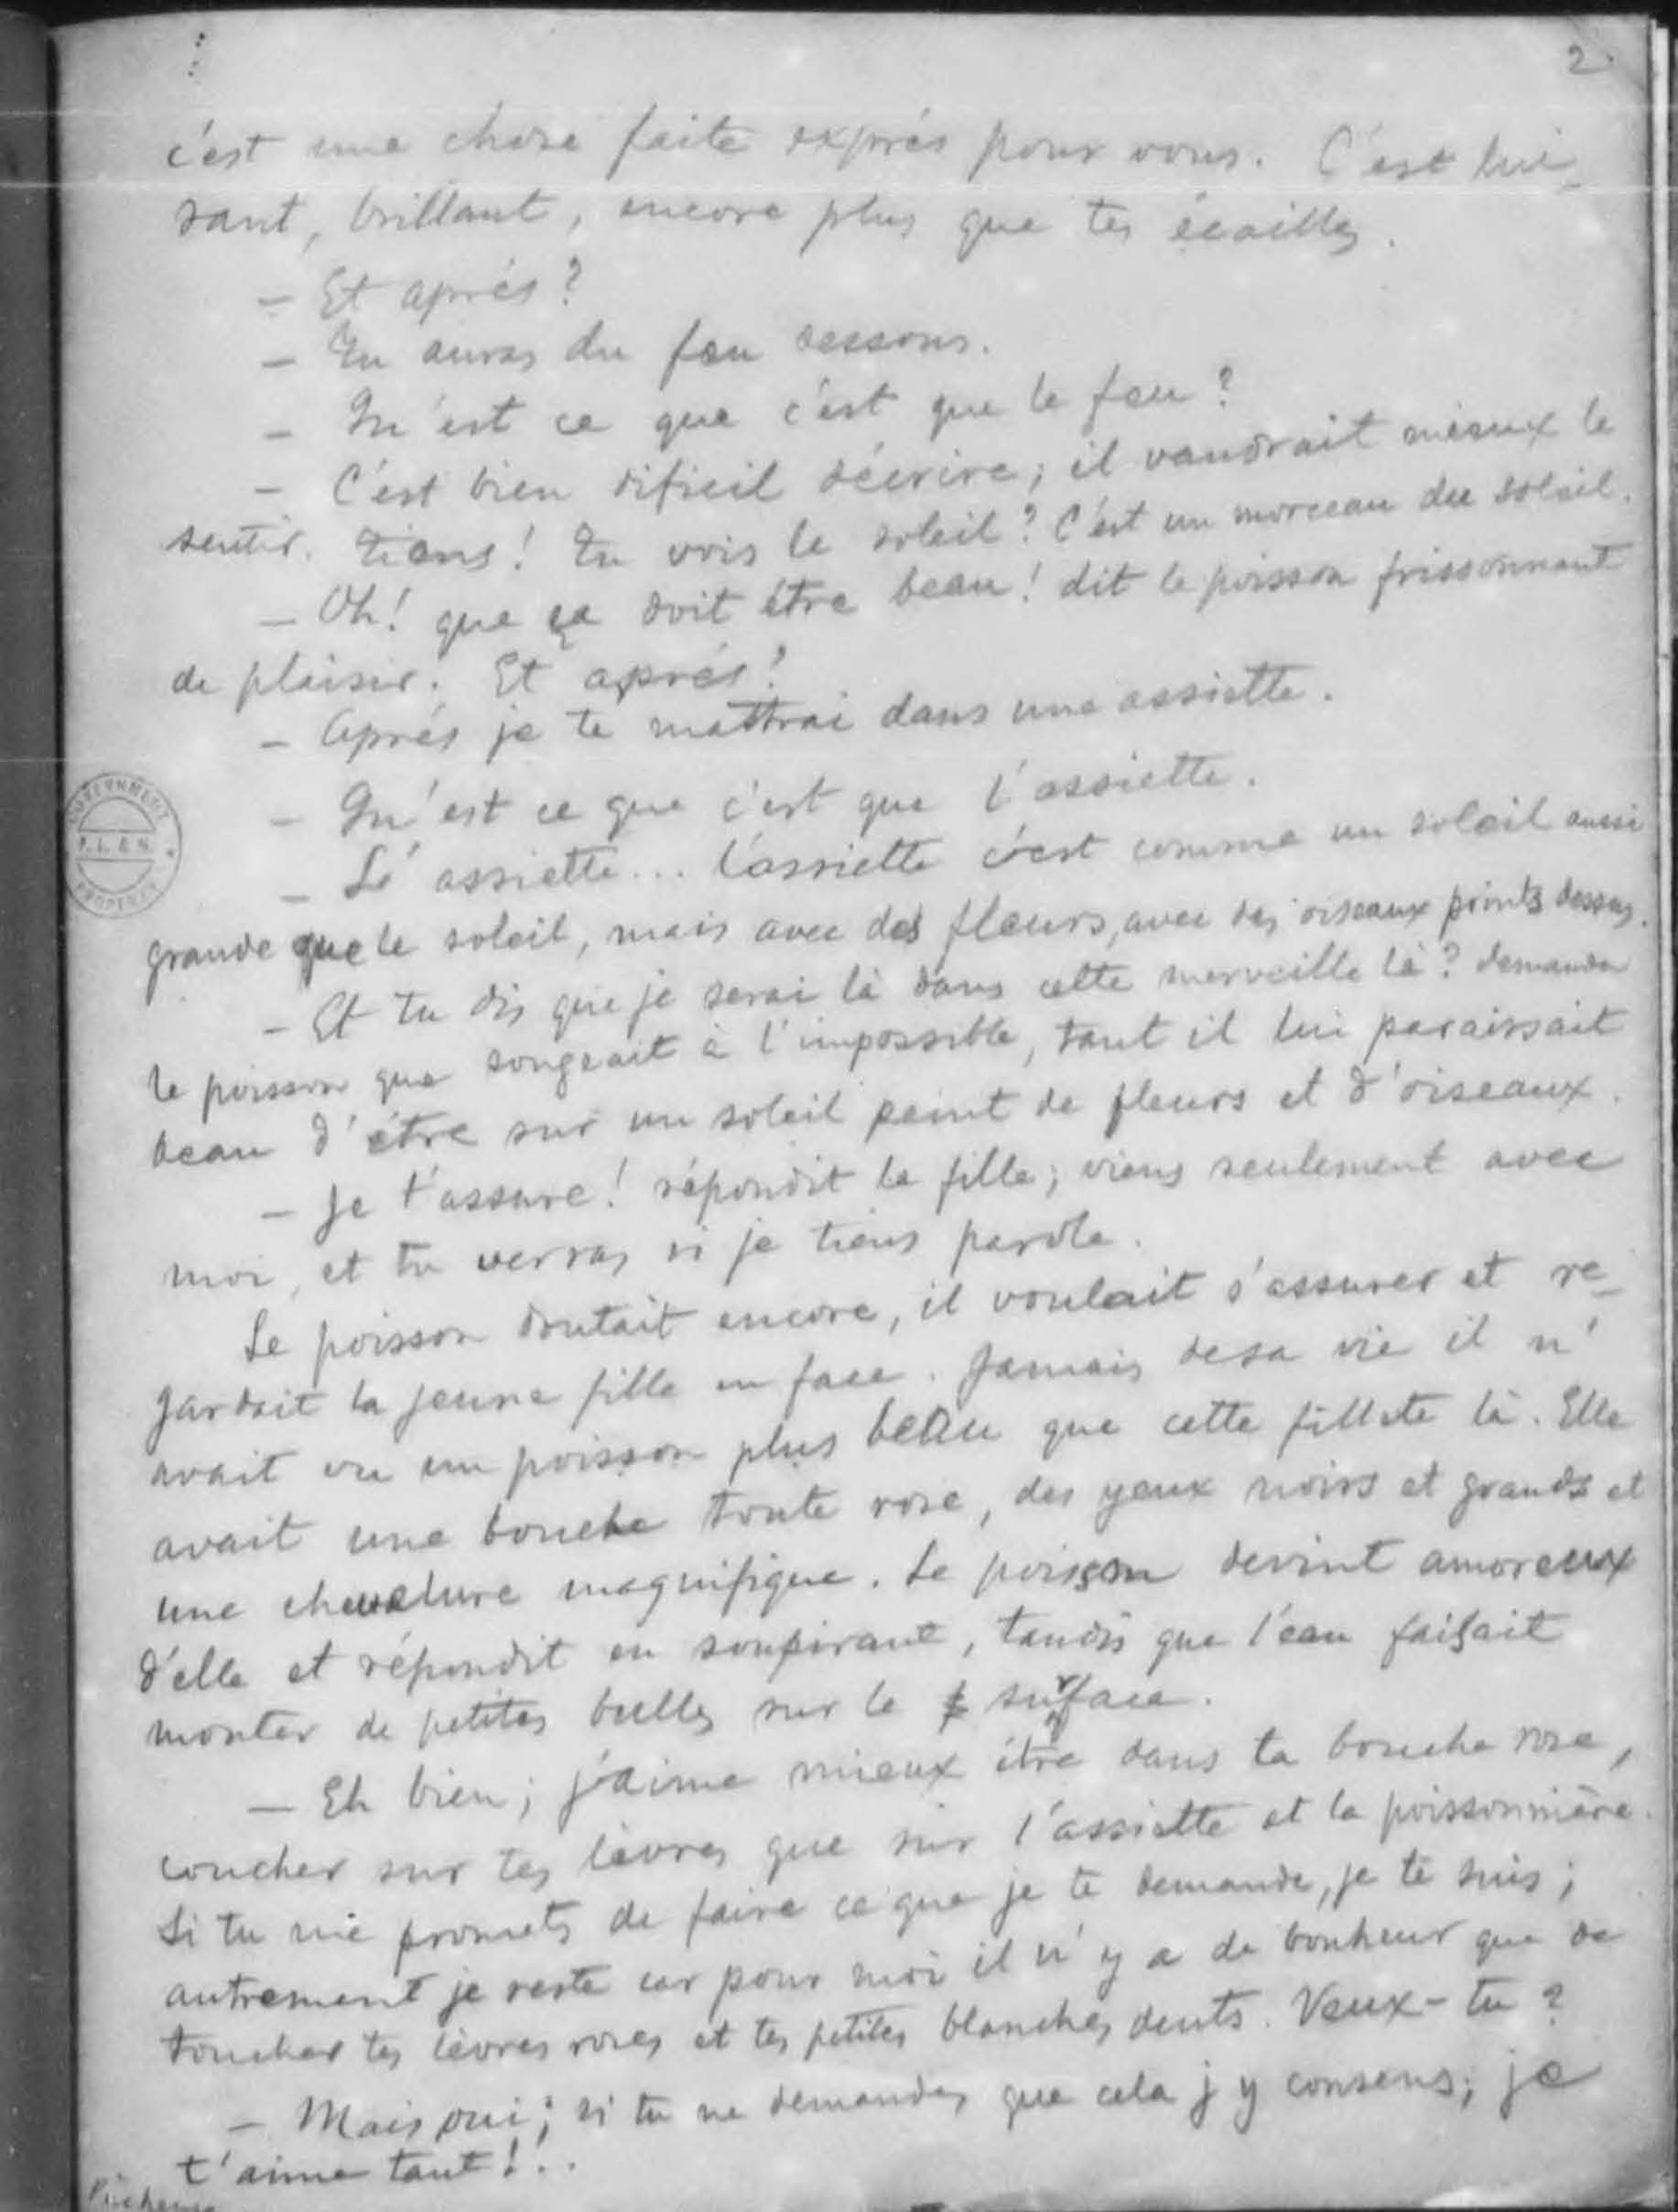 2
c'est une chose faite exprés pour vous. C'est lui-
sant, brillant, encore plus que tes écailles.
- Et aprés?
- Tu auras du feu dessous.
- Qu'est ce que c'est que le feu?
- C'est bien dificil décrire; il vaudrait mieux le
sentir. tiens! tu vois le soleil? C'est un morceau du soleil.
- Oh! que ça doit être beau! dit le poisson frissonnant
de plaisir. Et aprés?
- Aprés je te mettrai dans une assiette.
- Qu'est ce que c'est que l'assiette.
- L'assiette... l'assiette c'est comme un soleil aussi
grande que le soleil, mais avec des fleurs, avec des oiseaux peints dessus.
- Et tu dis que je serai là dans cette merveille là? demanda
le poisson que songeait à l'impossible, tant il lui paraissait
beau d'être sur un soleil peint de fleurs et d'oiseaux.
- Je t'assure! répondit la fille; viens seulement avec
moi, et tu verras si je tiens parole.
Le poisson doutait encore, il voulait s'assurer et re-
gardait la jeune fille en face. Jamais de sa vie il n'
avait vu un poisson plus beau que cette fillete là. Elle
avait une bouche toute rose, des yeux noirs et grands et
une chevelure magnifique. Le poisson devint amoreux
d'elle et répondit en soupirant, tandis que l'eau faisait
monter de petites bulles sur le surface.
- Eh bien; j'aime mieux être dans ta bouche rose,
coucher sur tes lèvres que sur l'assiette et la poissonnière.
Si tu me promets de faire ce que je te demande, je te suis;
autrement je reste car pour moi il n'y a de bonheur que de
toucher tes lèvres roses et tes petites blanches dents. Veux-tu?
- Mais oui; si tu ne demandes que cela j y consens; je
t'aime tant!..
GOVERNMENT
P.L. & N.
PROPERTY